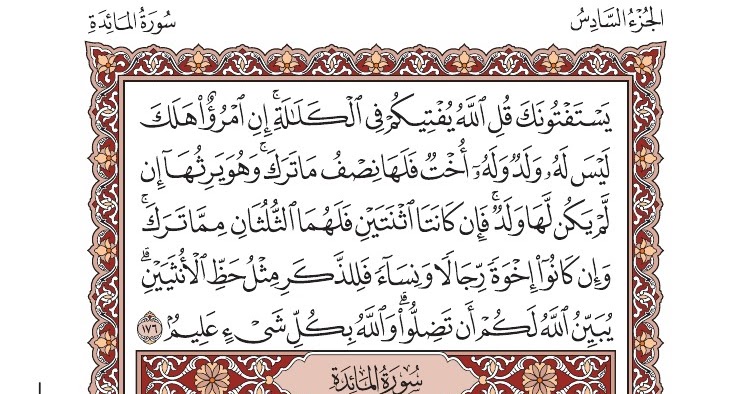 الجُزْءُ السَّادِسُ
سُورَةُ المَائِدَةِ
يَسۡتَفۡتُونَكَ قُلِ ٱللَّهُ يُفۡتِيكُمۡ فِي ٱلۡكَلَٰلَةِۚ إِنِ ٱمۡرُؤٌاْ هَلَكَ
لَيۡسَ لَهُۥ وَلَدٞ وَلَهُۥٓ أُخۡتٞ فَلَهَا نِصۡفُ مَا تَرَكَۚ وَهُوَ يَرِثُهَآ إِن
لَّمۡ يَكُن لَّهَا وَلَدٞۚ فَإِن كَانَتَا ٱثۡنَتَيۡنِ فَلَهُمَا ٱلثُّلُثَانِ مِمَّا تَرَكَۚ
وَإِن كَانُوٓاْ إِخۡوَةٗ رِّجَالٗا وَنِسَآءٗ فَلِلذَّكَرِ مِثۡلُ حَظِّ ٱلۡأُنثَيَيۡنِۗ
يُبَيِّنُ ٱللَّهُ لَكُمۡ أَن تَضِلُّواْۗ وَٱللَّهُ بِكُلِّ شَيۡءٍ عَلِيمُۢ ١٧٦
سُورَةُ المَائِدَةِ